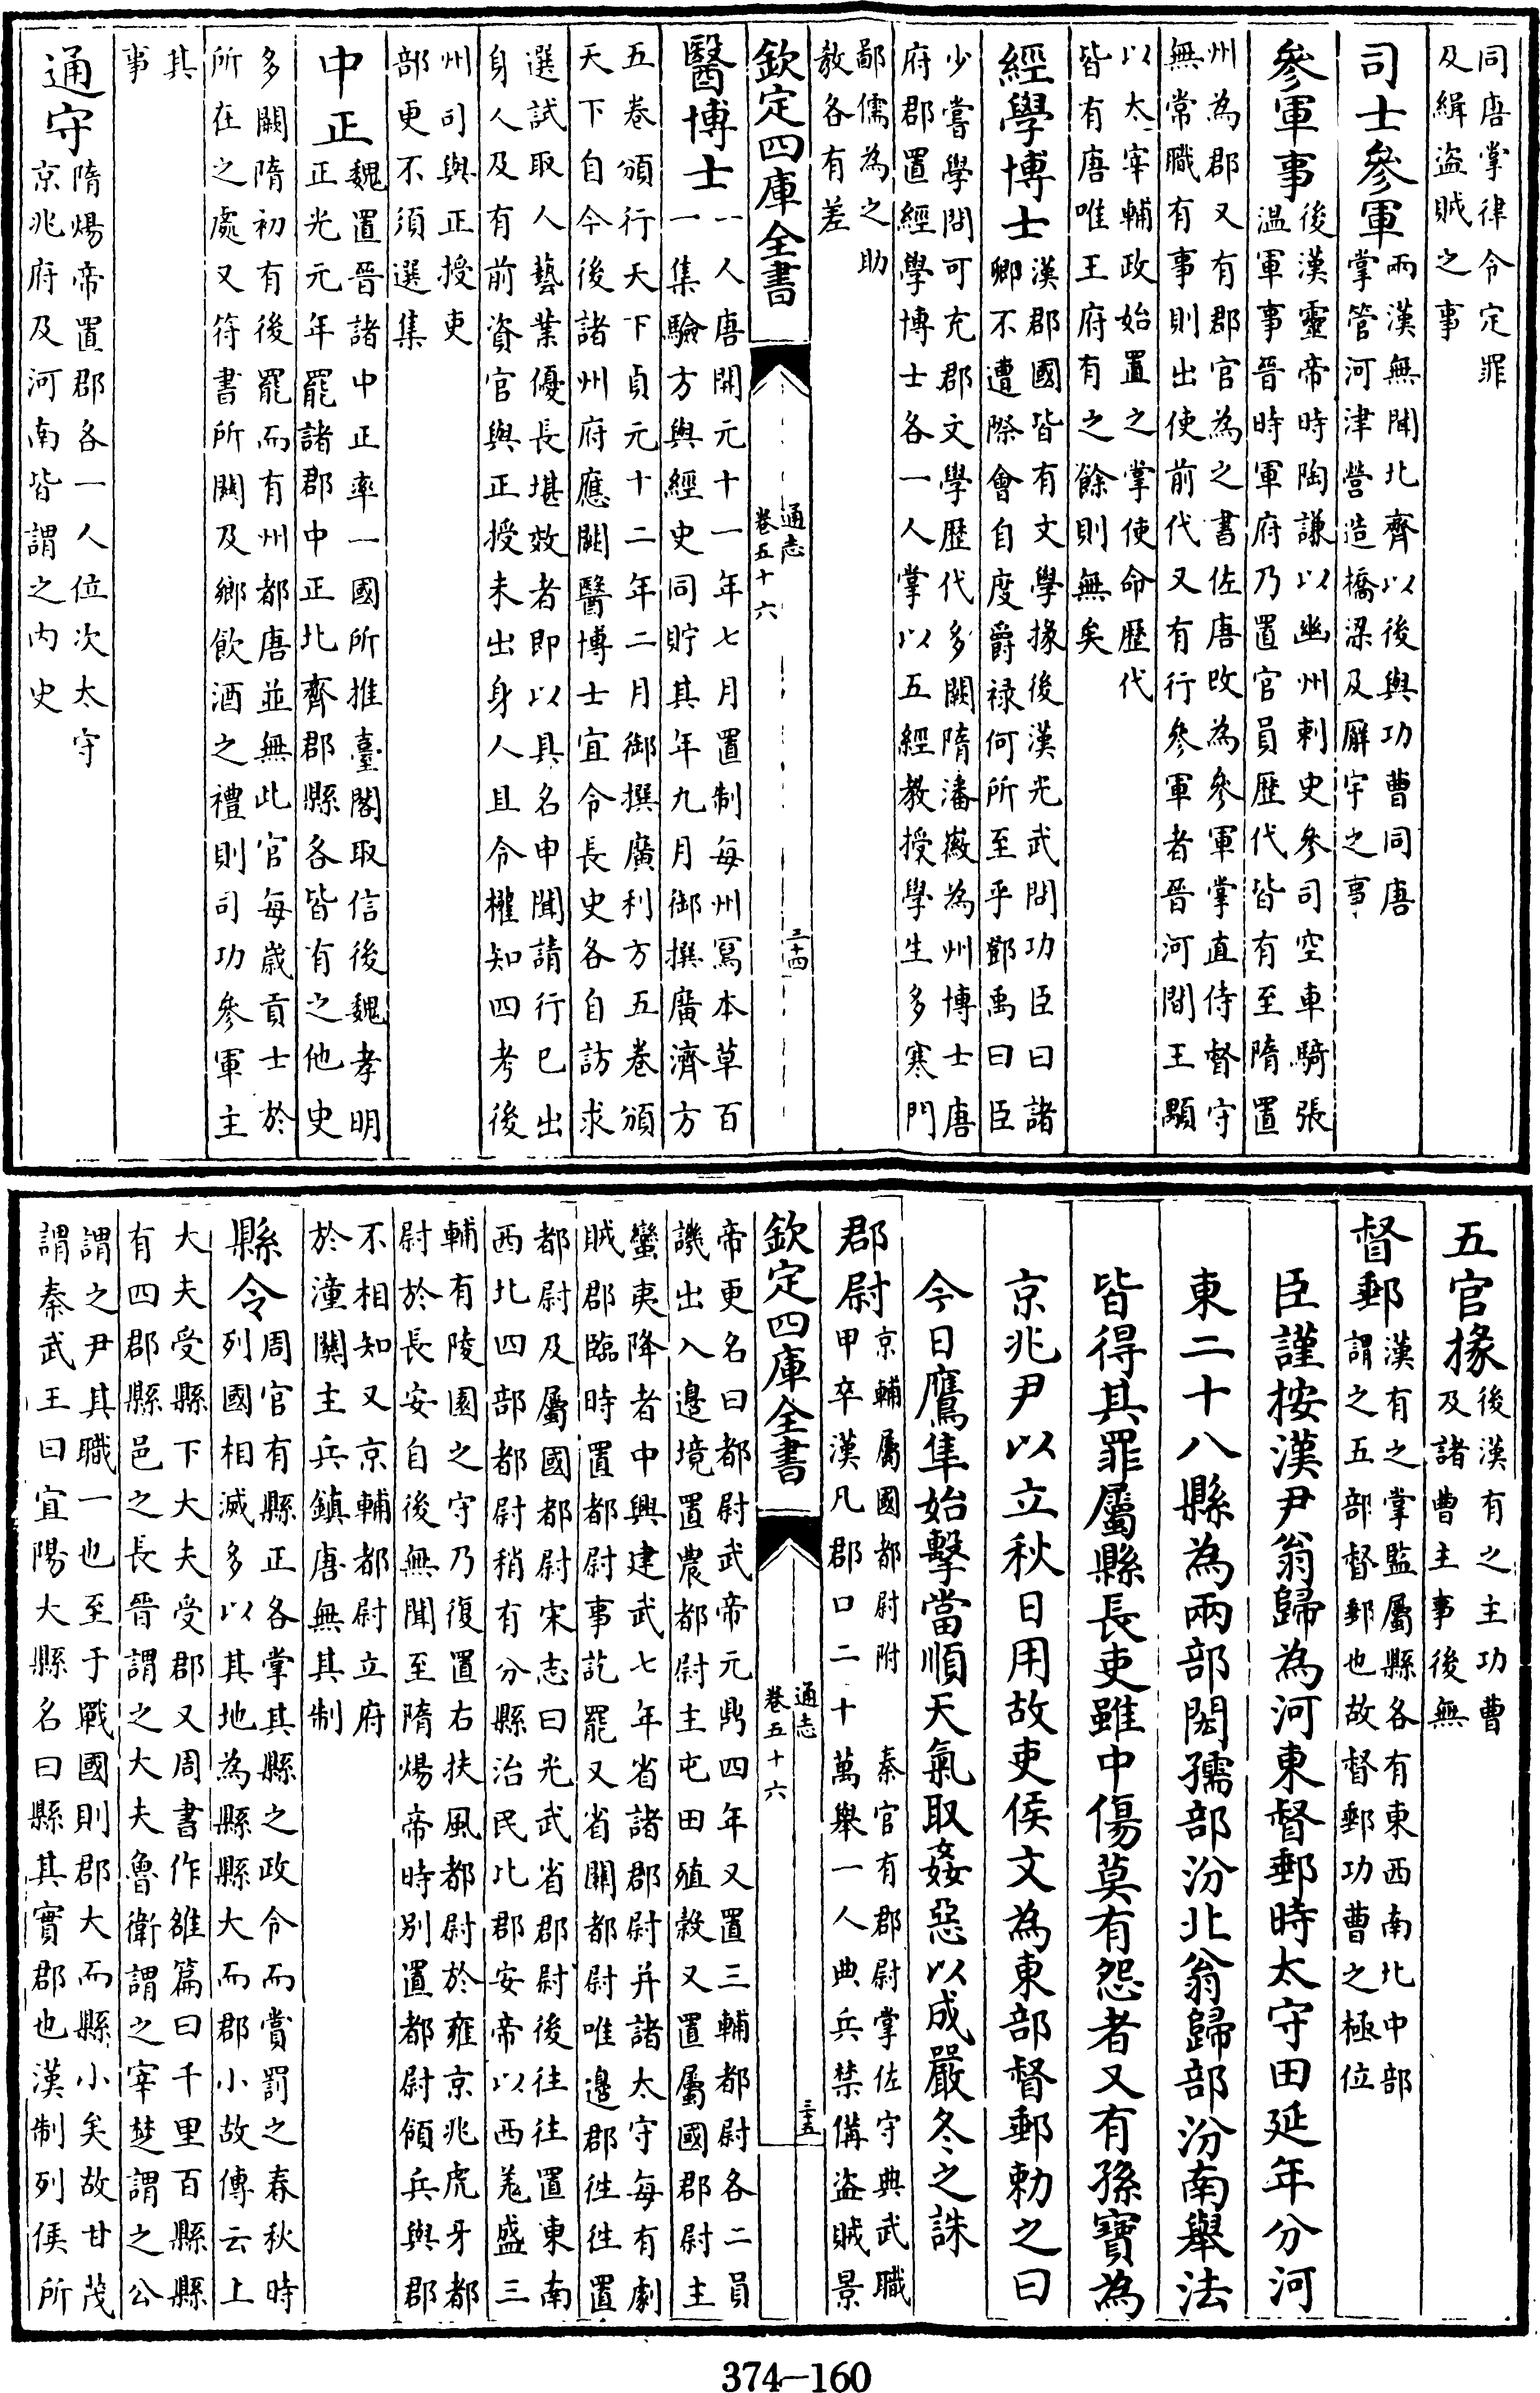 同唐掌律令定罪
及緝盜賊之事
司士參軍兩漢無聞北齊以後與功曹同唐
掌管河津營造橋梁及廨宇之事
參軍事後漢靈帝時陶謙以幽州刺史參司空車騎張
温軍事晉時軍府乃置官員歴代皆有至隋置
州為郡又有郡官為之書佐唐改為參軍掌直侍督守
無常職有事則出使前代又有行參軍者晉河間王顒
以太宰輔政始置之掌使命歴代
皆有唐唯王府有之餘則無矣
經學博士漢郡國皆有文學掾後漢光武問功臣曰諸
卿不遭際會自度爵禄何所至乎鄧禹曰臣
少嘗學問可充郡文學歴代多闕隋潘徽為州博士唐
府郡置經學博士各一人掌以五經教授學生多寒門
鄙儒為之助
教各有差
欽定四庫全書
通志
卷五十六
三十四
醫博士一人唐開元十一年七月置制每州寫本草百
一集驗方與經史同貯其年九月御撰廣濟方
五卷頒行天下貞元十二年二月御撰廣利方五卷頒
天下自今後諸州府應闕醫博士宜令長史各自訪求
選試取人藝業優長堪效者即以具名申聞請行已出
身人及有前資官與正授未出身人且令權知四考後
州司與正授吏
部更不須選集
中正魏置晉諸中正率一國所推臺閣取信後魏孝明
正光元年罷諸郡中正北齊郡縣各皆有之他史
多闕隋初有後罷而有州都唐並無此官每歲貢士於
所在之處又符書所關及鄉飲酒之禮則司功參軍主
其
事
通守隋煬帝置郡各一人位次太守
京兆府及河南皆謂之内史
五官掾後漢有之主功曹
及諸曹主事後無
督郵漢有之掌監屬縣各有東西南北中部
謂之五部督郵也故督郵功曹之極位
臣謹按漢尹翁歸為河東督郵時太守田延年分河
東二十八縣為兩部閎孺部汾北翁歸部汾南舉法
皆得其罪屬縣長吏雖中傷莫有怨者又有孫寶為
京兆尹以立秋日用故吏侯文為東部督郵勅之曰
今日鷹隼始擊當順天氣取姦惡以成嚴冬之誅
郡尉京輔屬國都尉附　秦官有郡尉掌佐守典武職
甲卒漢凡郡口二十萬舉一人典兵禁備盜賊景
欽定四庫全書
通志
卷五十六
三十五
帝更名曰都尉武帝元鼎四年又置三輔都尉各二員
譏出入邊境置農都尉主屯田殖穀又置屬國郡尉主
蠻夷降者中興建武七年省諸郡尉并諸太守每有劇
賊郡臨時置都尉事訖罷又省關都尉唯邊郡往往置
都尉及屬國都尉宋志曰光武省郡尉後往往置東南
西北四部都尉稍有分縣治民比郡安帝以西羌盛三
輔有陵園之守乃復置右扶風都尉於雍京兆虎牙都
尉於長安自後無聞至隋煬帝時别置都尉領兵與郡
不相知又京輔都尉立府
於潼關主兵鎮唐無其制
縣令周官有縣正各掌其縣之政令而賞罰之春秋時
列國相滅多以其地為縣縣大而郡小故傳云上
大夫受縣下大夫受郡又周書作雒篇曰千里百縣縣
有四郡縣邑之長晉謂之大夫魯衛謂之宰楚謂之公
謂之尹其職一也至于戰國則郡大而縣小矣故甘茂
謂秦武王曰宜陽大縣名曰縣其實郡也漢制列侯所
374-160